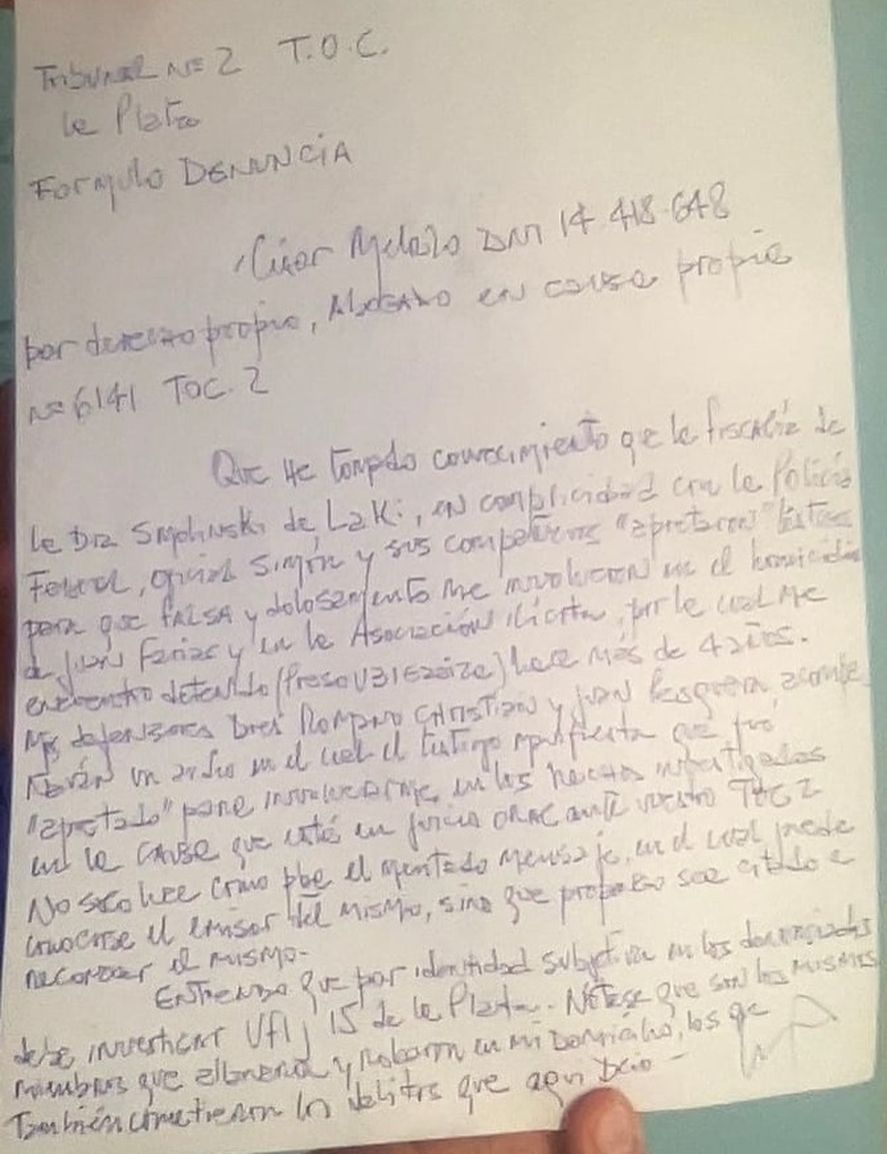 Tribunal Nº 2 T.O.C.
La Plata
Formulo DENUNCIA
César Melazo DNI 14.418.648
por derecho propio, Abogado en causa propia
Nº 6141 TOC. 2
Que He tomado conocimiento que la fiscalía de
la Dra Smolinski de LaKi, en complicidad con la Policía
Federal, oficial Simón y sus compañeros "apretaron" testigos
para que FALSA y dolosamente me involucren en el homicidio
de Juan Farias y en la Asociación ilícita, por la cual me
encuentro detenido (Preso U31 Ezeiza) hace más de 4 años.
Mis defensores Dres Romano Christian y Juan Pesquera, acompa
ñarán un audio en el cual el testigo manifiesta que fue
"apretado" para involucrarme, en los hechos investigados
en la causa que está en juicio ORAL ante vuestro TOC 2
No solo hace como pbe el mentado mensaje, en el cual puede
conocerse el emisor del mismo, sino que propongo sea citado a
reconocer el mismo.-
Entiendo que por identidad subjetiva en los denunciados
debe investigar UFIJ 15 de la Plata-. Nótese que son los mismos
miembros que allanaron y robaron en mi Domicilio, los que
También cometieron los delitos que aquí